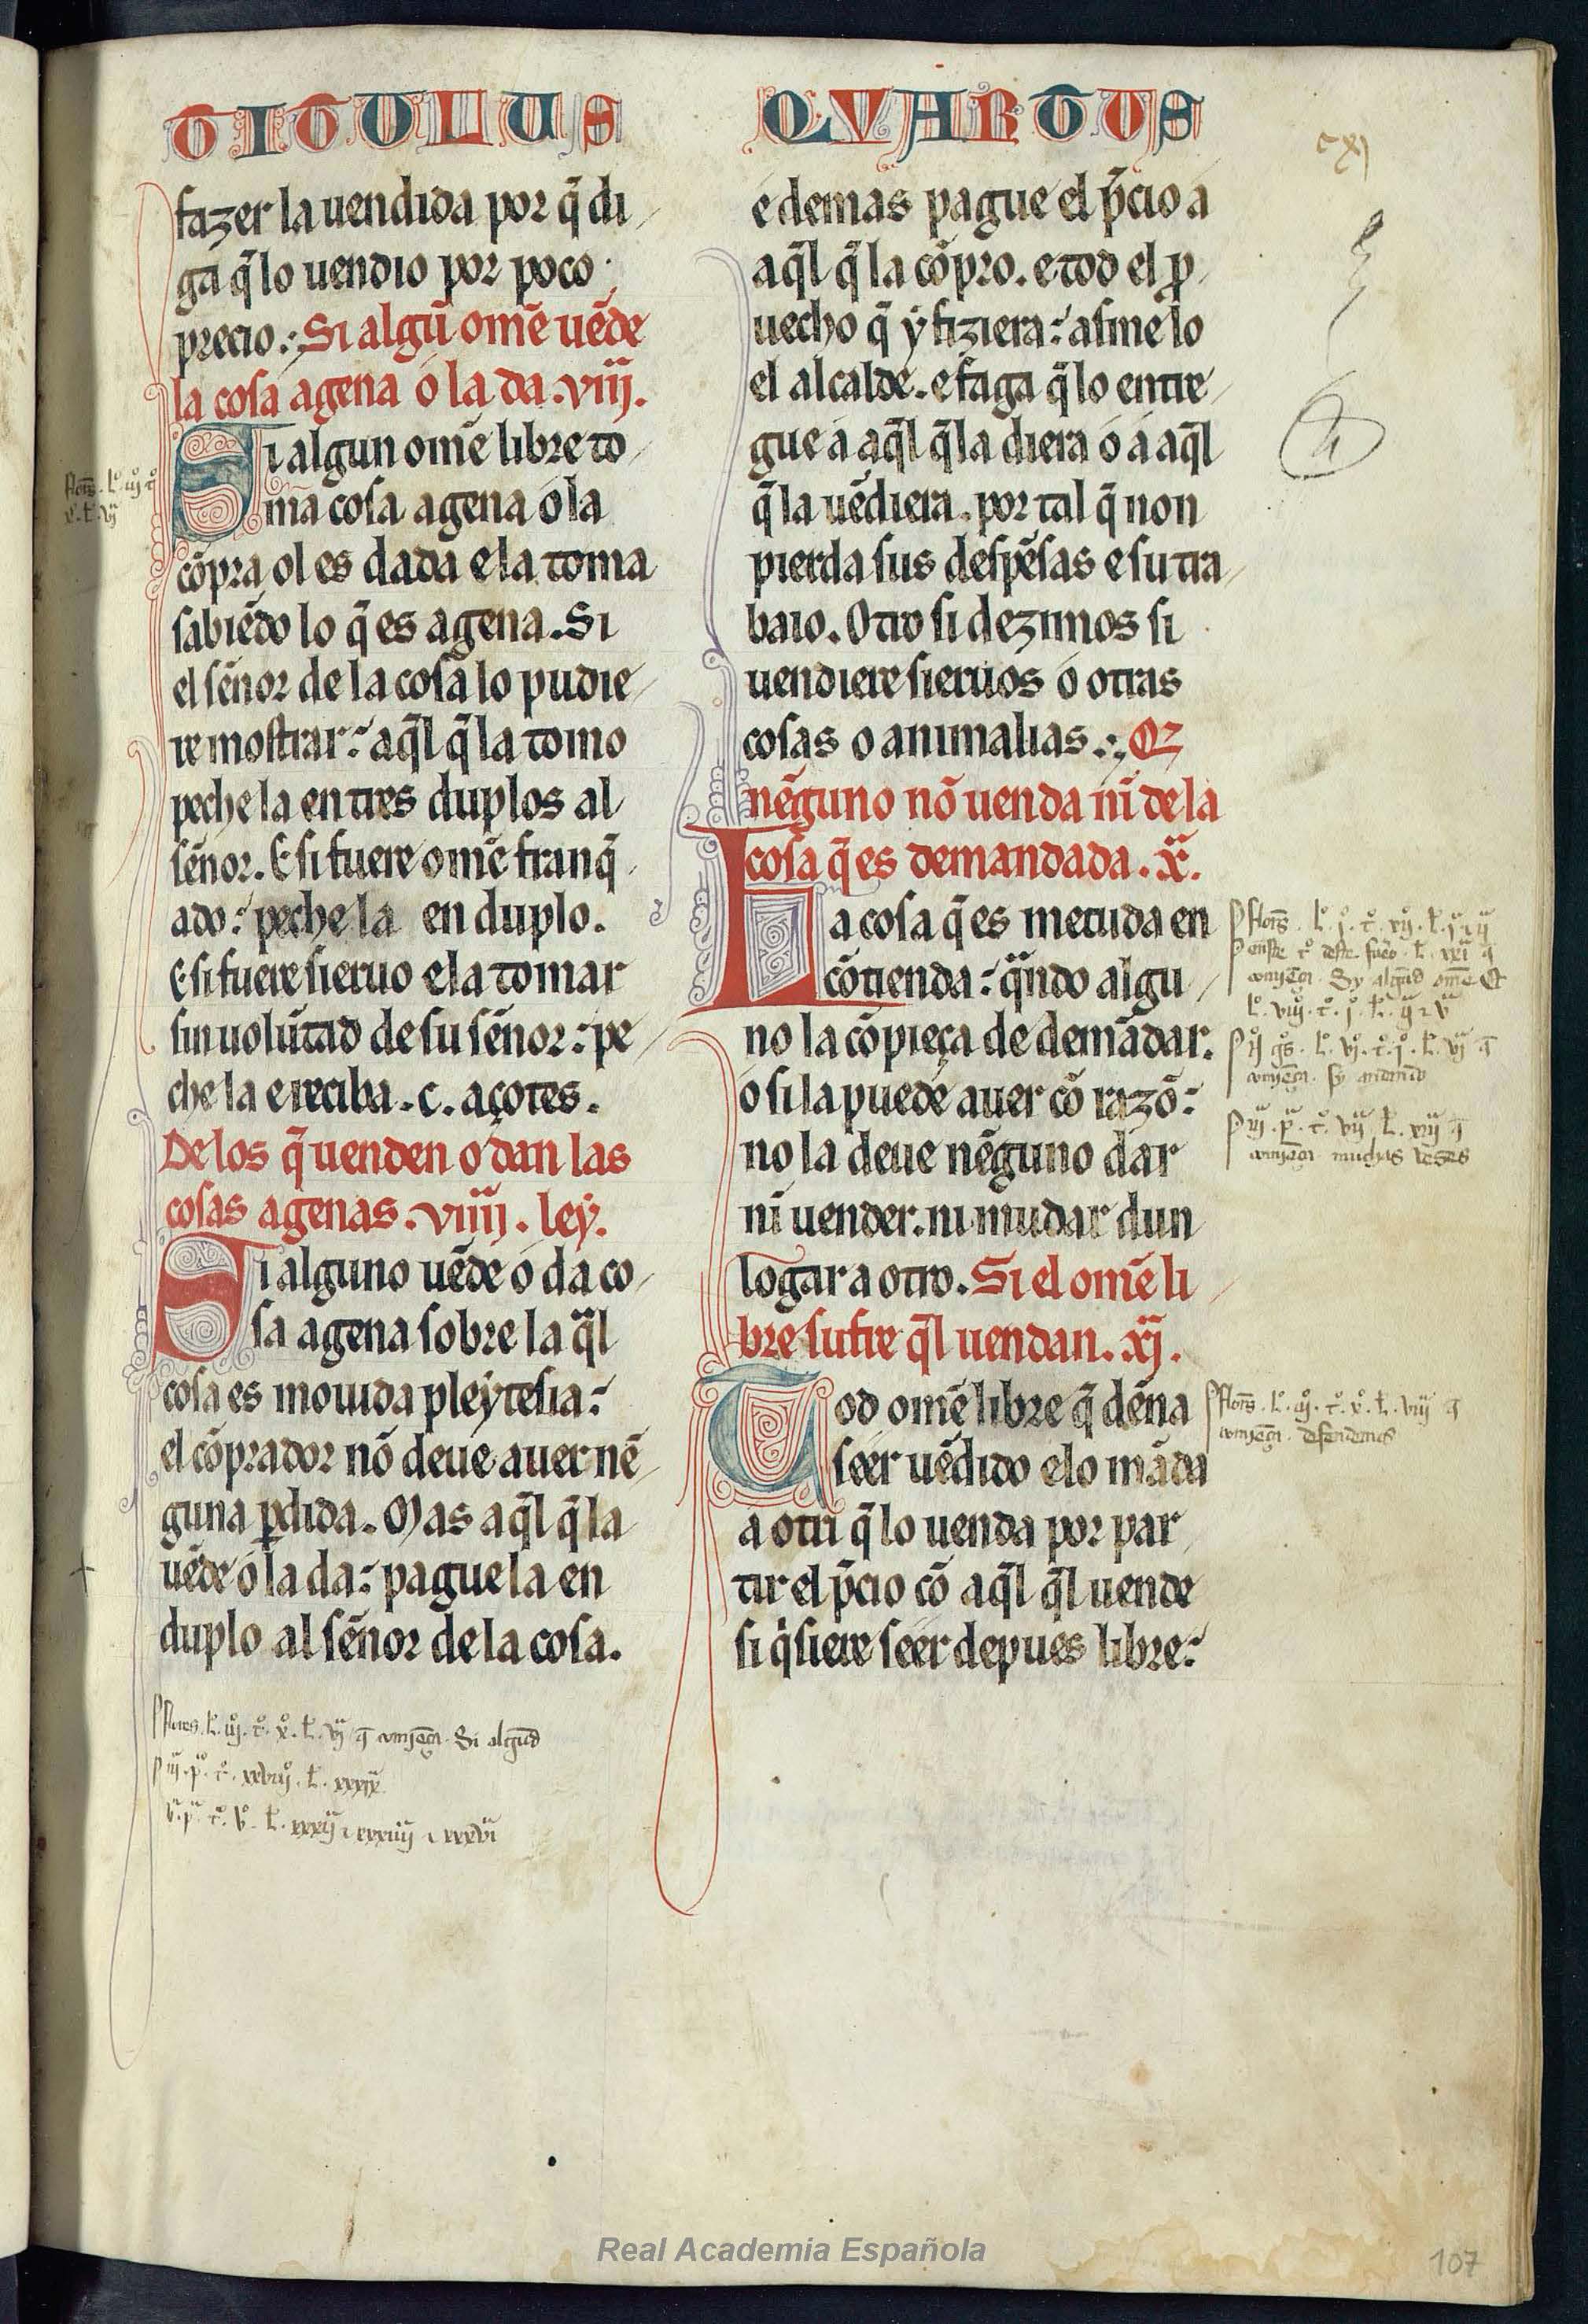 TITULUS
fazer la uendida por q̃ di
ga q̃ lo uendio por poco
precio. Si algũ om̃e uẽde
la cosa agena o la da. viij.
Si algun om̃e libre to
ma cosa agena o la
cõpra ol es dada e la toma
sabiẽdo lo q̃ es agena. Si
el sẽnor de la cosa lo pudie
re mostrar: aq̃l q̃ la tomo
peche la en tres duplos al
sẽnor. E si fuere om̃e franq̃
ado: peche la en duplo.
E si fuere sieruo e la tomar
sin uolũtad de su sẽnor: pe
che la e reciba .c. açotes.
De los q̃ uenden o dan las
cosas agenas. viiij. ley.
Si alguno uẽde o da co
sa agena sobre la q̃l
cosa es mouida pleytesia:
el cõprador nõ deue auer nẽ
guna ꝑdida. Mas aq̃l q̃ la
uẽde o la da: pague la en
duplo al sẽnor de la cosa.
QVARTUS
e demas pague el p̃cio a
aq̃l q̃ la cõpro. e tod el ꝓ
uecho q̃ y fiziera: asme lo
el alcalde. e faga q̃ lo entre
gue a aq̃l q̃ la diera o a aq̃l
q̃ la uẽdiera. por tal q̃ non
pierda sus despẽsas e su tra
baio. Otro si dezimos si
uendiere sieruos o otras
cosas o animalias. Q̃
nẽguno nõ uenda nĩ de la
cosa q̃ es demandada. x.
La cosa q̃ es metuda en
cõtienda: q̃ndo algu
no la cõpieça de demãdar.
o si la puede auer cõ razõ:
no la deue nẽguno dar
nĩ uender. ni mudar dun
logar a otro. Si el om̃e li
bre sufre q̃l uendan. xj.
Tod om̃e libre q̃ dẽna
seer uẽdido e lo mãda
a otri q̃ lo uenda por par
tir el p̃cio cõ aq̃l q̃l uende
si q̃siere seer depues libre:
cxj
Real Academia Española
107